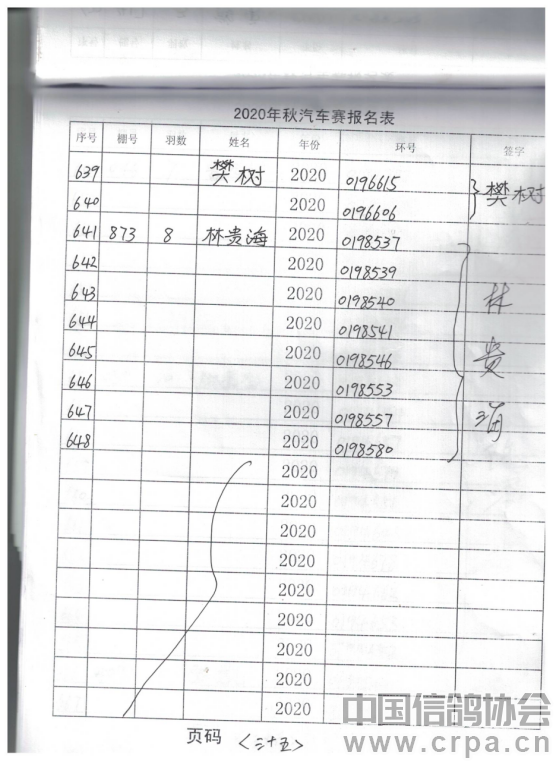 2020年秋汽车赛报名表
序号 棚号 羽数 姓名 年份 环号 签字
639 樊树 2020 0196615 樊树
640 2020 0196606
641 873 8 林贵海 2020 0198537 林贵海
642 2020 0198539
643 2020 0198540
644 2020 0198541
645 2020 0198546
646 2020 0198553
647 2020 0198557
648 2020 0198580
2020
2020
2020
2020
2020
2020
2020
2020
2020
页码 <三十五>
中国信鸽协会
www.crpa.cn